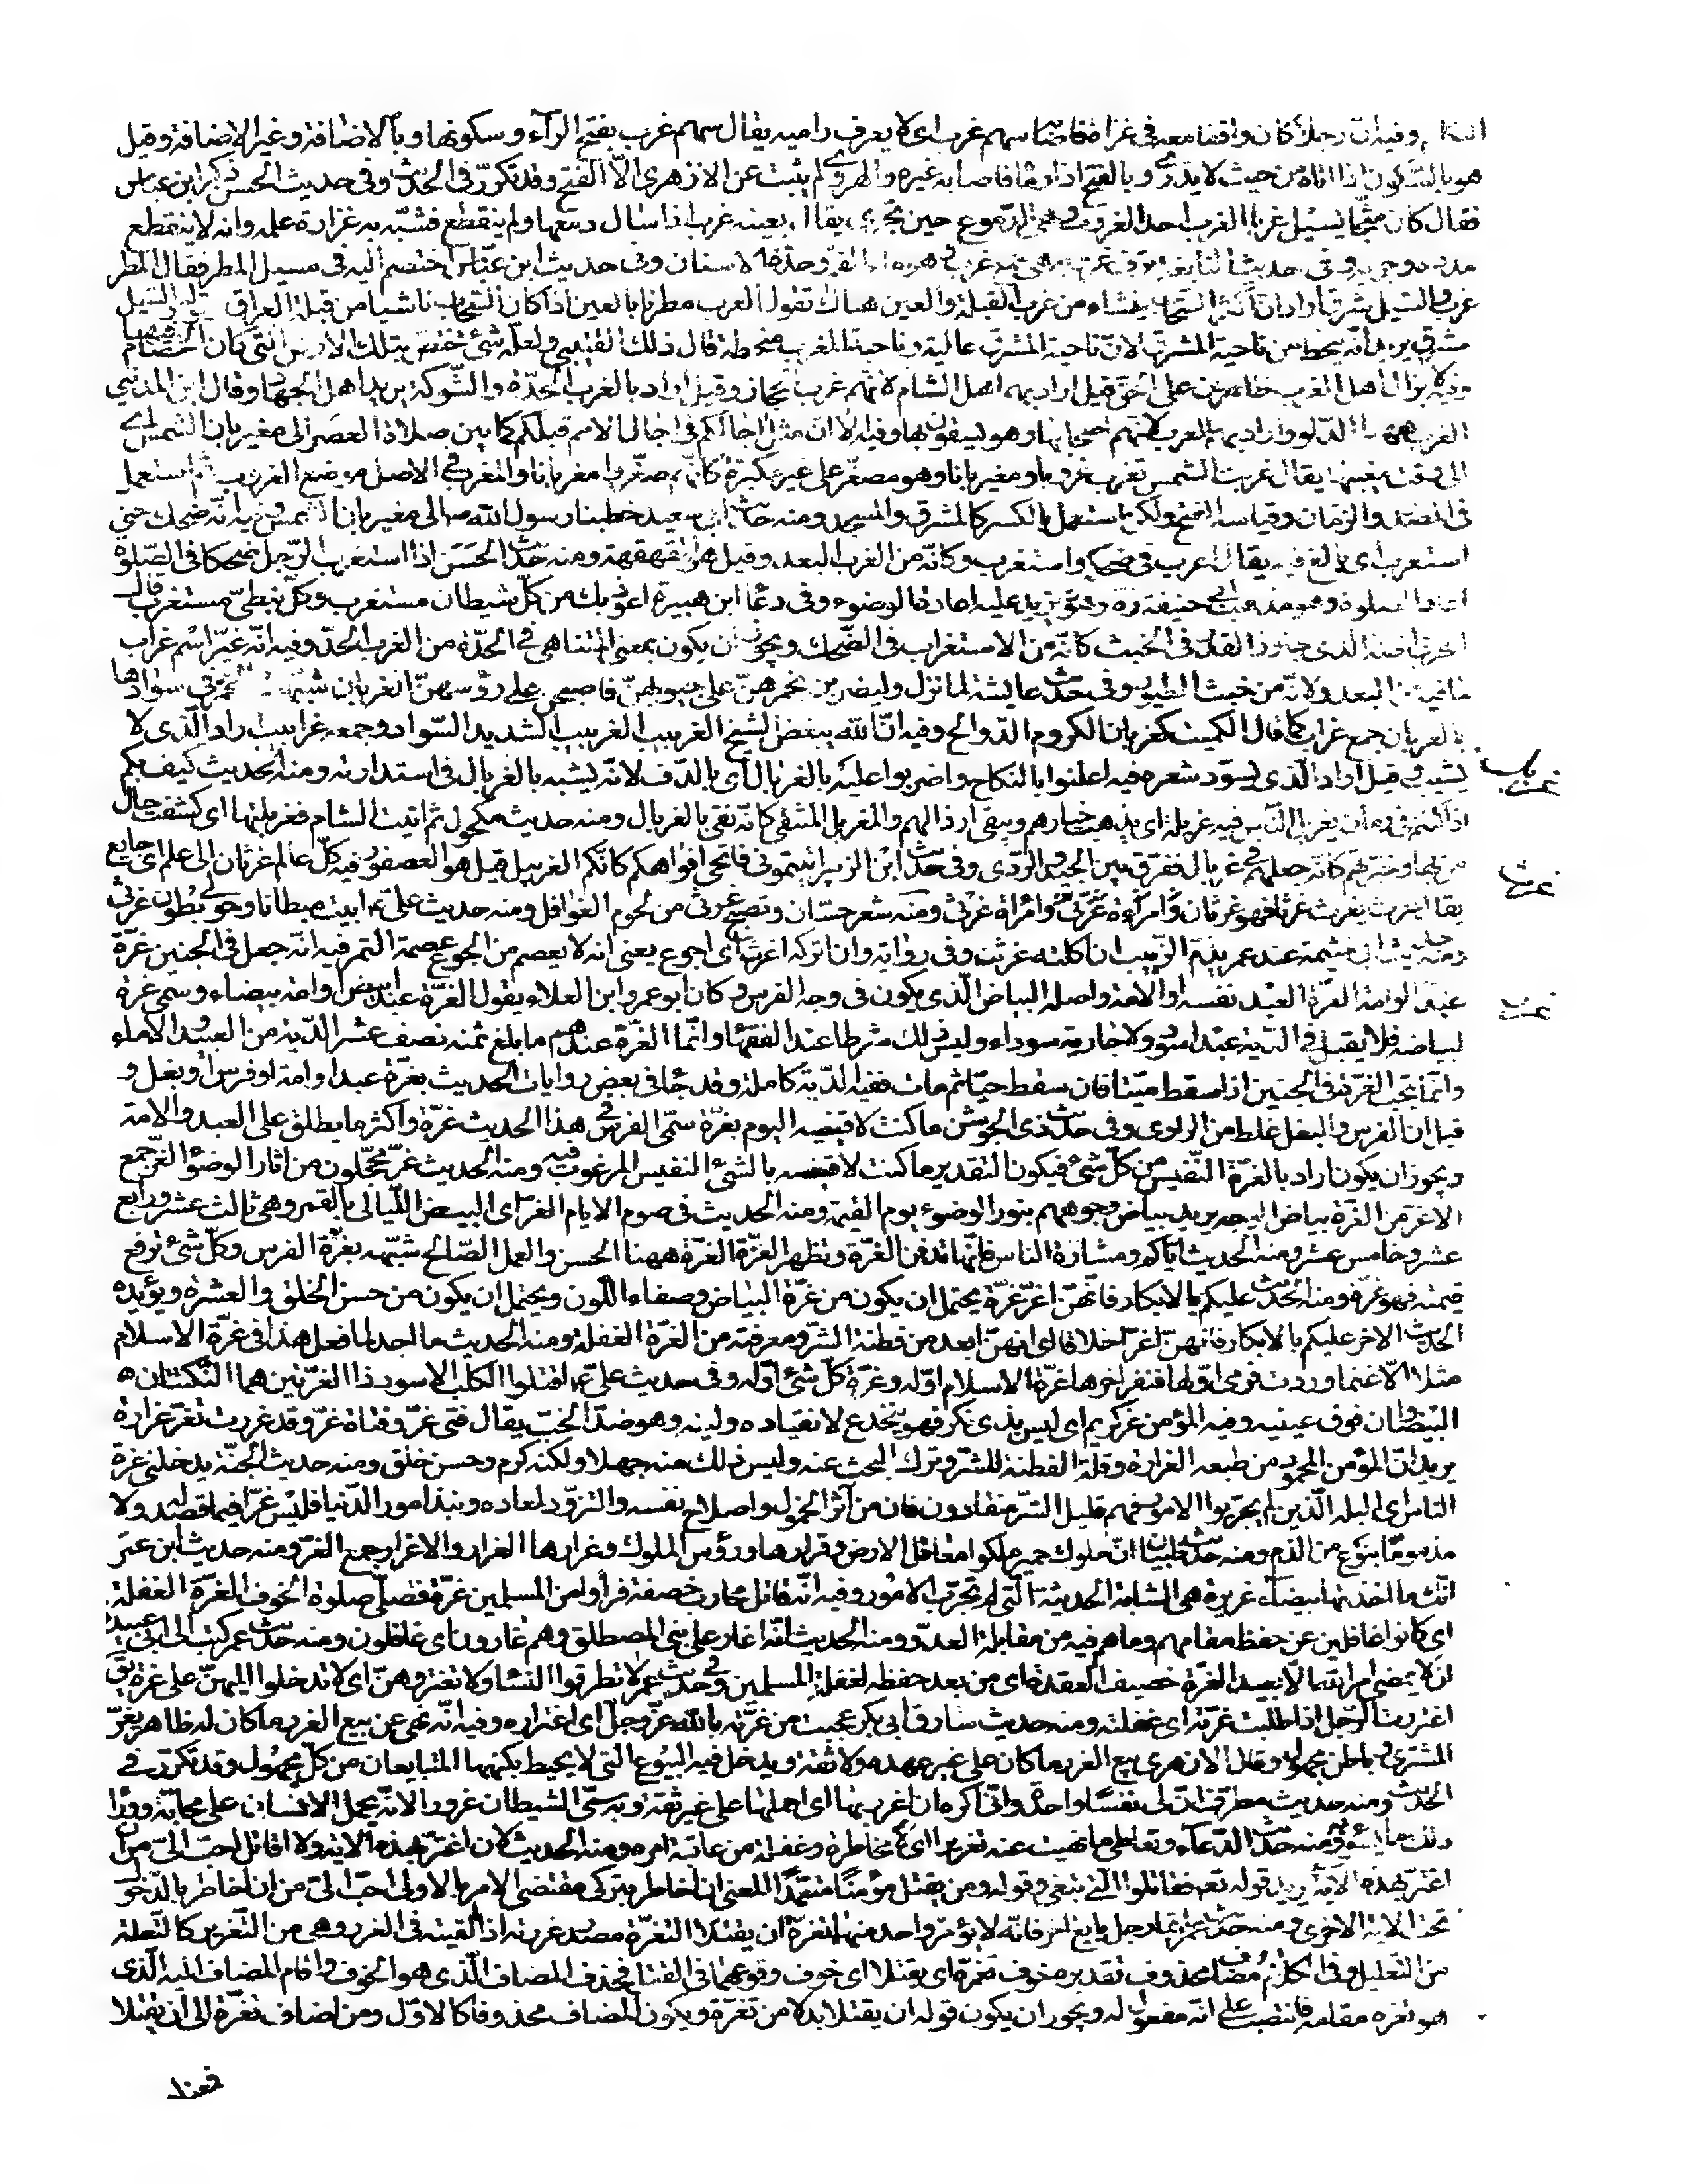 وفيه ان رجلا كان واقفا معه في غزاة فاصابه سهم غرب اى لا يعرف راميه يقال سهم غرب بفتح الرآء وسكونها وبالاضافة وغير الاضافة وقيل
هو بالسكون اذا اتاه من حيث لا يدرى وبالفتح اذا رماه فاصاب غيره والهروى لم يثبت عن الازهرى الّا الفتح وقد تكرّر فى الحديث وفى حديث الحسن ذكر ابن عباس
فقال كان مثجّا يسيل غربا الغرب احد الغروب وهى الدّموع حين تجرى يقال بعينه غرب اذا سال دمعها ولم ينقطع فشبّه به غزارة علمه وانه لا ينقطع
مدده وجريه وفى حديث النابغة ترف غروبه هى جمع غرب وهو ماء الفم وحدّة الاسنان وفى حديث ابن عبّاس اختصم اليه فى مسيل المطر فقال المطر
غرب والسيل شرق اراد ان اكثر السحاب ينشاء من غرب القبلة والعين هناك تقول العرب مطرنا بالعين اذا كان السّحاب ناشيا من قبلة العراق وقوله والسّيل
مشرق يريد انّه ينحط من ناحية المشرق لانّ ناحية المشرق عالية وناحية المغرب منحطة قال ذلك القتيبى ولعلّه شئ يختصّ بتلك الارض الّتى كان الخصام فيها
وفيه لا يزال اهل الغرب ظاهرين على الحق قيل اراد بهم اهل الشام لانهم غرب الحجاز وقيل اراد بالغرب الحدّة والشّوكة يريد اهل الجهاد وقال ابن المدينى
الغرب ههنا الدّلو واراد بهم العرب لانّهم اصحابها وهم يستقون بها وفيه الا ان مثل اجالكم فى اجال الامم قبلكم كما بين صلاة العصر الى مغيربان الشمس اى
الى وقت مغيبها يقال غربت الشمس تغرب غروبا ومغيربانا وهو مصغّر على غير مكبّره كانّهم صغّروا مغربانا والمغرب فى الاصل موضع الغروب ثم استعمل
فى المصدر والزمان وقياسه الفتح ولكن استعمل بالكسر كالمشرق والمسجد ومنه حديث ابى سعيد خطبنا رسول الله صم الى مغيربان الشمس وفيه انّه ضحك حتى
استغرب اى بالغ فيه يقال اغرب فى ضحكه واستغرب وكانّه من الغرب البعد وقيل هو القهقهة ومنه حديث الحسن اذا استغرب الرّجل ضحكا فى الصّلوة
اعاد الصلوة وهو مذهب ابى حنيفة ره وهو يزيد عليه اعادة الوضوء وفى دعاء ابن هبيرة اعوذ بك من كلّ شيطان مستغرب وكلّ نبطىّ مستعرب قال
الحربى اظنه الذى جاوز القدر فى الخبث كانّه من الاستغراب فى الضّحك ويجوز ان يكون بمعنى المتناهى فى الحدّة من الغرب الحدّ وفيه انّه غيّر اسم غراب
لما فيه من البعد ولانّه من خبث الطيور وفى حديث عايشة لما نزل وليضربن بخمرهنّ على جيوبهنّ فاصبحن على رؤسهنّ الغربان شبّهت الخمر فى سوادها
بالغربان جمع غراب كما قال الكميت كغربان الكروم الدّوالح وفيه انّ الله يبغض الشيخ الغربيب الغربيب الشديد السّواد وجمعه غرابيب اراد الّذى لا
يشيب وقيل اراد الّذى يسوّد شعره فيه اعلنوا بالنكاح واضربوا عليه بالغربال اى بالدّف لانّه يشبه بالغربال فى استدارته ومنه الحديث كيف بكم
اذا كنتم فى زمان يغربل الناس فيه غربلة اى يذهب خيارهم ويبقى ارذالهم والمغربل المنتقى كانّه نقى بالغربال ومنه حديث مكحول ثم اتيت الشام فغربلتها اى كشفت حال
من بها وخبرتهم كانّه جعلهم فى غربال ففرّق بين الجيّد والردّى وفى حديث ابن الزبير اتيتمونى فاتحى افواهكم كانّكم الغربيل قيل هو العصفور فيه كلّ عالم غرثان الى علم اى جايع
يقال غرث يغرث غرثا فهو غرثان وامرأة غرثى ومنه شعر حسّان وتصبح غرثى من لحوم الغوافل ومنه حديث علىّ ع ابيت مبطانا وحولى بطون غرثى
ومنه حديث ابى خيثمة عند عمر يذمّ الزبيب ان اكلته غرثت وفى رواية وان تركه اغرث اى اجوع يعنى انه لا يعصم من الجوع عصمة التمر فيه انّه جعل فى الجنين غرّة
عبدا او امة الغرّة العبد نفسه او الامة واصله البياض الّذى يكون فى وجه الفرس وكان ابو عمرو ابن العلاء يقول الغرّة عبد ابيض او امة بيضاء وسمى غرة
لبياضه فلا يقبل فى الدّية عبد اسود ولا جارية سوداء وليس ذلك شرطا عند الفقهاء وانّما الغرّة عندهم ما بلغ ثمنه نصف عشر الدّية من العبيد والاماء
وانّما تجب الغرّة فى الجنين اذا سقط ميّتا فان سقط حيّا ثم مات ففيه الدّية كاملة وقد جاء فى بعض روايات الحديث بغرّة عبد او امة او فرس او بغل و
قيل ان الفرس والبغل غلط من الراوى وفى حديث ذى الجوشن ما كنت لاقيضه اليوم بغرّة سمّى الفرس فى هذا الحديث غرّة واكثر ما يطلق على العبد والامة
ويجوز ان يكون اراد بالغرّة النّفيس من كلّ شئ فيكون التقدير ما كنت لاقيضه بالشئ النفيس المرغوب فيه ومنه الحديث غرّ محجّلون من اثار الوضوء الغرّ جمع
الاغرّ من الغرّة بياض الوجه يريد بياض وجوههم بنور الوضوء يوم القيمة ومنه الحديث فى صوم الايام الغرّ اى البيض اللّيالى بالقمر وهى ثالث عشر ورابع
عشر وخامس عشر ومنه الحديث ايّاكم ومشارّة الناس فانّها تدفن الغرّة وتظهر العرّة الغرّة ههنا الحسن والعمل الصّالح شبّهه بغرّة الفرس وكلّ شئ ترفع
قيمته فهو غرّة ومنه الحديث عليكم بالابكار فانّهنّ اغرّ غرّة يحتمل ان يكون من غرّة البياض وصفاء اللّون ويحتمل ان يكون من حسن الخلق والعشرة ويؤيده
الحديث الاخر عليكم بالابكار فانهنّ اغرّ اخلاقا اى انهنّ ابعد من فطنة الشرّ ومعرفته من الغرّة الغفلة ومنه الحديث ما اجد لما فعل هذا فى غرّة الاسلام
مثلا الّا غنما وردت فرمى اوّلها فنفر اخرها غرّة الاسلام اوّله وغرّة كلّ شئ اوّله وفى حديث علىّ ع اقتلوا الكلب الاسود ذا الغرّتين هما النكتتان
البيضاوان فوق عينيه وفيه المؤمن غرّ كريم اى ليس بذى نكر فهو ينخدع لانقياده ولينه وهو ضدّ الخبّ يقال فتى غرّ وفتاة غرّ وقد غررت تغرّ غرارة
يريد انّ المؤمن المحمود من طبعه الغرارة وقلّة الفطنة للشرّ وترك البحث عنه وليس ذلك منه جهلا ولكنه كرم وحسن خلق ومنه حديث الجنّة يدخلنى غرّة
الناس اى البله الّذين لم يجرّبوا الامور فهم قليل الشرّ منقادون فان من آثر الخمول واصلاح نفسه والتزوّد لمعاده ونبذ امور الدّنيا فليس غرّا فيما قصد له ولا
مذموما بنوع من الذم ومنه حديث ظبيان انّ ملوك حمير ملكوا معاقل الارض وقرارها ورؤس الملوك وغرارها الغرار والاغرار جمع الغرّ ومنه حديث ابن عمر
انّك ما اخذتها بيضاء غريرة هى الشابة الحديثة الّتى لم تجرّب الامور وفيه انّه قاتل محارب خصفة فرأوا من المسلمين غرّة فصلّى صلوة الخوف الغرّة الغفلة
اى كانوا غافلين عن حفظ مقامهم وما هم فيه من مقابلة العدوّ ومنه الحديث انّه اغار على بنى المصطلق وهم غارّون اى غافلون ومنه حديث عمر كتب الى ابى عبيدة
ان لا يمضى امر الله الّا بعيد الغرّة حصيف العقدة اى من بعد حفظه لغفلة المسلمين وفى حديث عمر لا تطرقوا النساء ولا تغترّوهنّ اى لا تدخلوا اليهنّ على غرّة يق
اغتررت الرّجل اذا طلبت غرّته اى غفلته ومنه حديث سارق ابى بكر عجبت من غرّته بالله عزّ وجلّ اى اغتراره وفيه انّه نهى عن بيع الغرر ما كان له ظاهر يغرّ
المشترى وباطن مجهول وقال الازهرى بيع الغرر ما كان على غير عهدة ولا ثقة ويدخل فيه البيوع التى لا يحيط بكنهها المتبايعان من كلّ مجهول وقد تكرّر فى
الحديث ومنه حديث مطرّف انّ لى نفسا واحدة وانّى اكره ان اغرّر بها اى احملها على غير ثقة وبه سمّى الشيطان غرورا لانّه يحمل الانسان على محابّه ووراء
ذلك ما يسوؤه ومنه حديث الدّعاء وتعاطى ما نهيت عنه تغريرا اى مخاطرة وغفلة من عاقبة امره ومنه الحديث لان اغترّ بهذه الاية ولا اقاتل احبّ الىّ من ان
اغترّ بهذه الاية يريد قوله تعم فقاتلوا الّتى تبغى وقوله ومن يقتل مؤمنا متعمّدا المعنى ان اخاطر بتركى مقتضى الامر بالاولى احبّ الىّ من ان اخاطر بالدّخول
تحت الاية الاخرى ومنه حديث عمر ايّما رجل بايع اخر فانّه لا يؤمّر واحد منهما تغرّة ان يقتلا التغرّة مصدر غررته اذا القيته فى الغرر وهى من التّغرير كالتّعلة
من التعليل وفى الكلام مضاف محذوف تقديره خوف تغرّة اى يقتلا اى خوف وقوعهما فى القتل فحذف المضاف الّذى هو الخوف واقام المضاف اليه الّذى
هو تغرة مقامه فانتصب على انّه مفعول له ويجوز ان يكون قوله ان يقتلا بدلا من تغرّة ويكون المضاف محذوفا كالاوّل ومن اضاف تغرّة الى ان يقتلا
فمعناه
غربل
غرث
غرر